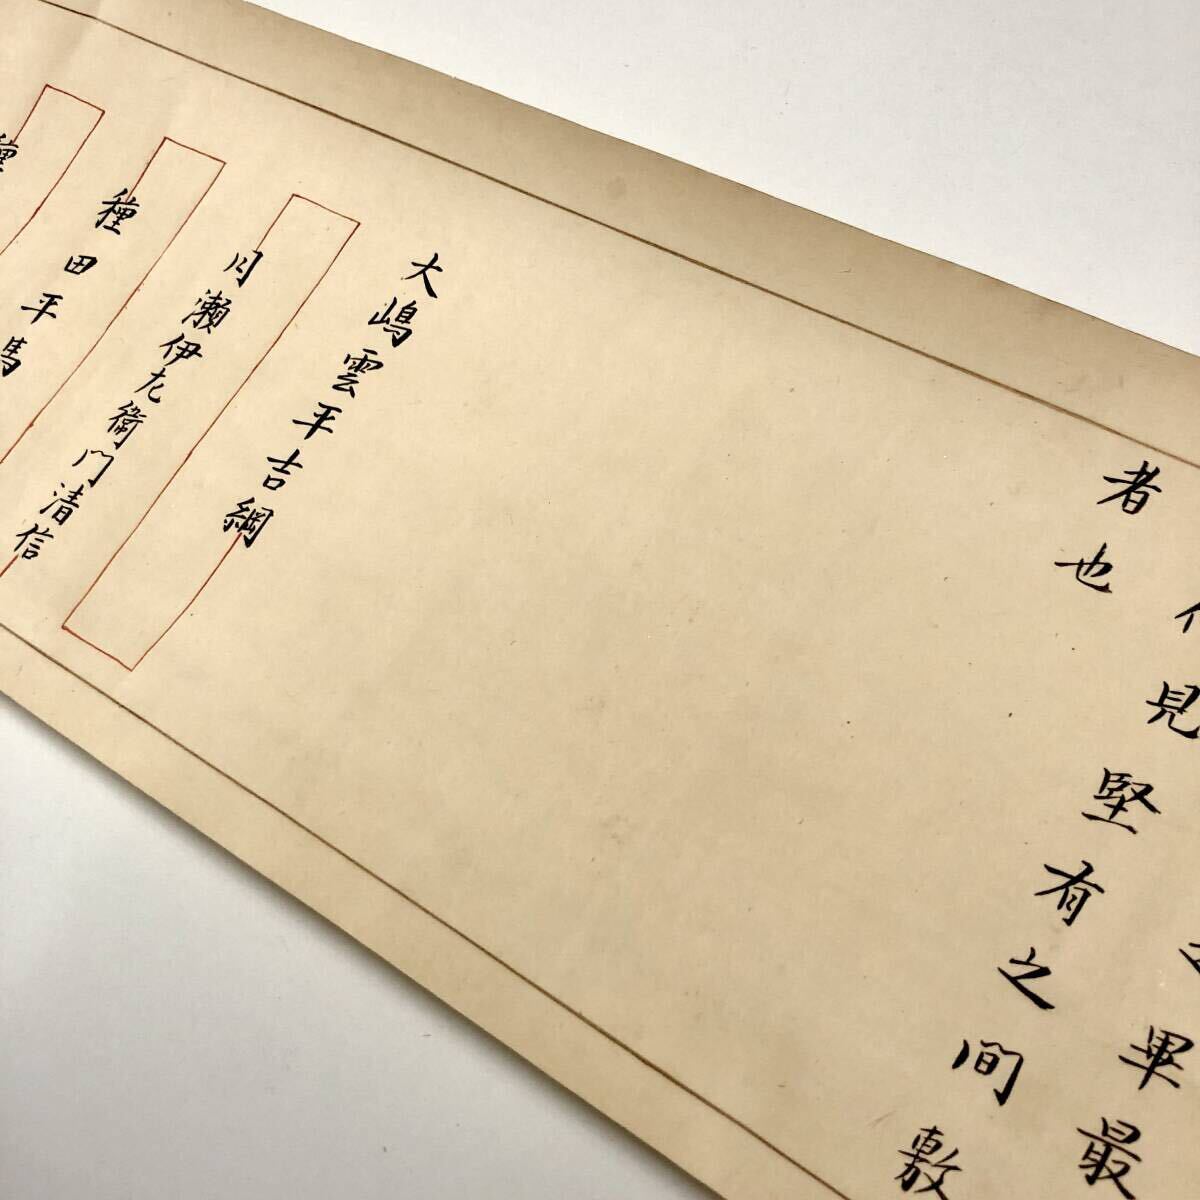 畢最
見堅有之間敷
者也
大嶋雲平吉綱
月瀬伊左衛門清信
種田平馬
種